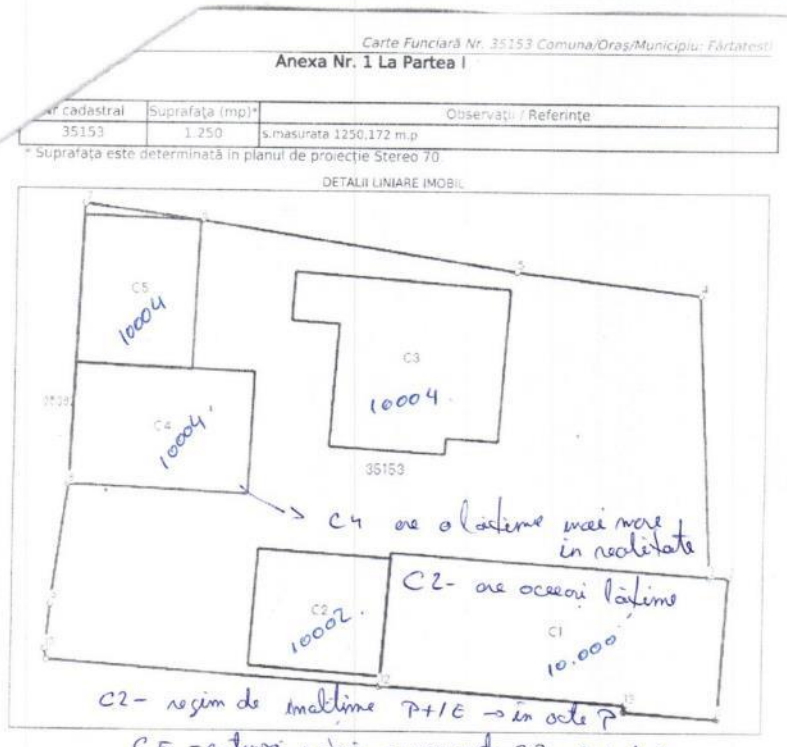 Carte Funciară Nr. 35153 Comuna/Oraş/Municipiu: Fârtatesti
Anexa Nr. 1 La Partea I
Nr cadastral Suprafaţa (mp)* Observaţii / Referinţe
35153 1.250 s.masurata 1250,172 m.p
* Suprafaţa este determinată in planul de proiecţie Stereo 70.
DETALII LINIARE IMOBIL
7
6
5
4
C5
10004
C3
10004
C4
10004
35153
8
C4 are o lățime mai mare
în realitate
C2- are aceeași lățime
C2
10002
C1
10.000
12
13
C2- regim de înălțime P+1E → în acte P
C5